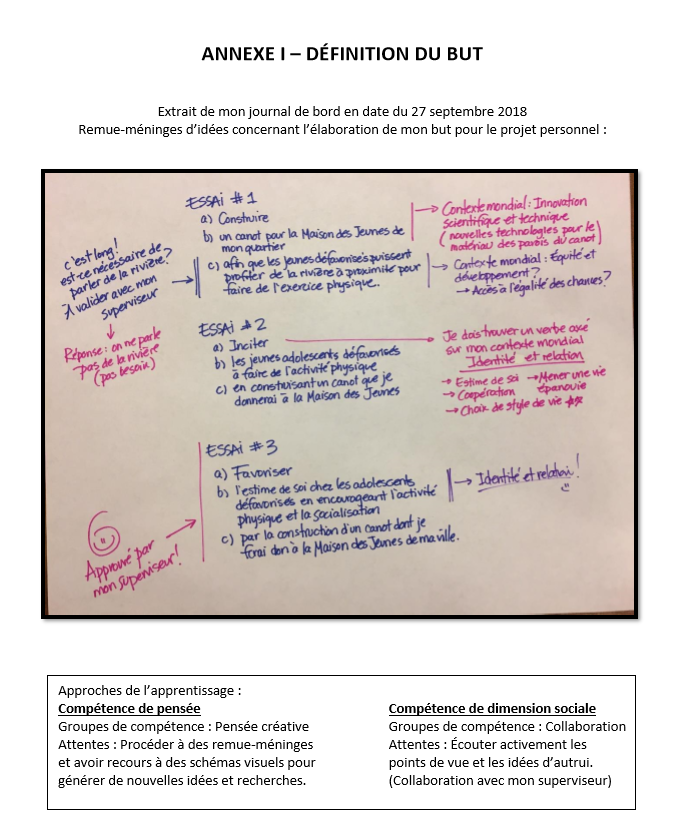 ANNEXE I – DÉFINITION DU BUT
Extrait de mon journal de bord en date du 27 septembre 2018
Remue-méninges d’idées concernant l’élaboration de mon but pour le projet personnel :
ESSAi #1
a) Construire
b) un canot pour la Maison des Jeunes de
mon quartier
c) afin que les jeunes défavorisés puissent
profiter de la rivière à proximité pour
faire de l'exercice physique.
→ Contexte mondial : Innovation
scientifique et technique
(nouvelles technologies pour le
matériau des parois du canot)
→ Contexte mondial : Équité et
développement?
→ Accès à l'égalité des chances?
c'est long!
est-ce nécessaire de
parler de la rivière?
À valider avec mon
superviseur
Réponse : on ne parle
pas de la rivière
(pas besoin)
ESSAi #2
a) Inciter
b) les jeunes adolescents défavorisés
à faire de l'activité physique
c) en construisant un canot que je
donnerai à la Maison des Jeunes
Je dois trouver un verbe axé
sur mon contexte mondial
Identité et relation
→ Estime de soi → Mener une vie
→ Coopération épanouie
→ Choix de style de vie
ESSAi #3
a) Favoriser
b) l'estime de soi chez les adolescents
défavorisés en encourageant l'activité
physique et la socialisation
c) par la construction d'un canot dont je
ferai don à la Maison des Jeunes de ma ville.
→ Identité et relation!
Approuvé par
mon superviseur!
Approches de l’apprentissage :
Compétence de pensée
Groupes de compétence : Pensée créative
Attentes : Procéder à des remue-méninges
et avoir recours à des schémas visuels pour
générer de nouvelles idées et recherches.
Compétence de dimension sociale
Groupes de compétence : Collaboration
Attentes : Écouter activement les
points de vue et les idées d’autrui.
(Collaboration avec mon superviseur)